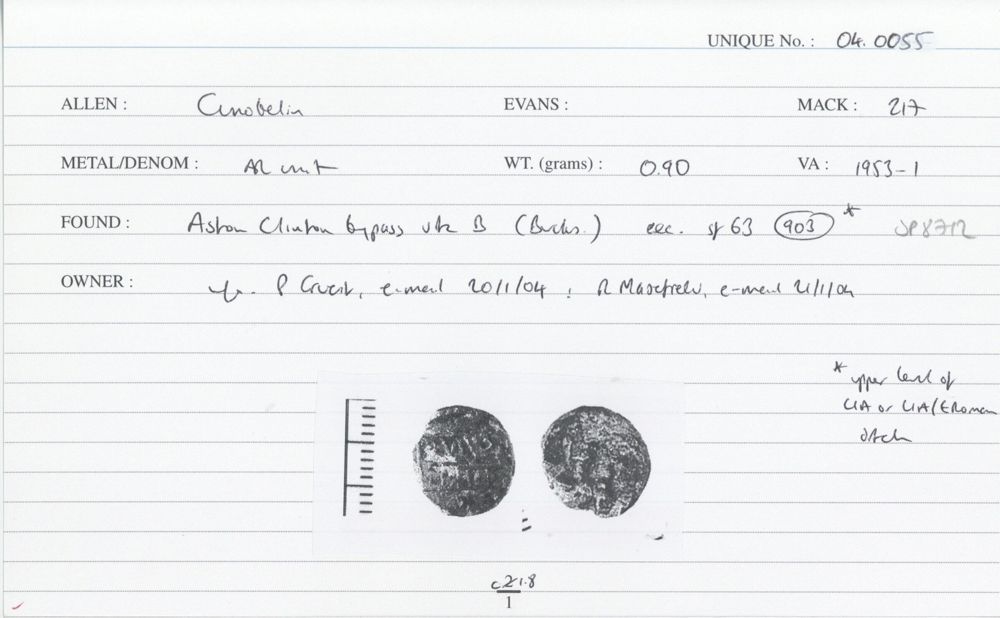 UNIQUE No. : 04.0055
ALLEN : Cunobelin EVANS : MACK : 217
METAL/DENOM : AR unit WT. (grams) : 0.90 VA : 1953-1
FOUND : Aston Clinton bypass site B (Bucks.) exc. sf 63 903 *
OWNER : P e-mail 20/1/04 ; R e-mail 21/1/04
* upper level of
LIA or LIA/ERoman
ditch
1.8
1